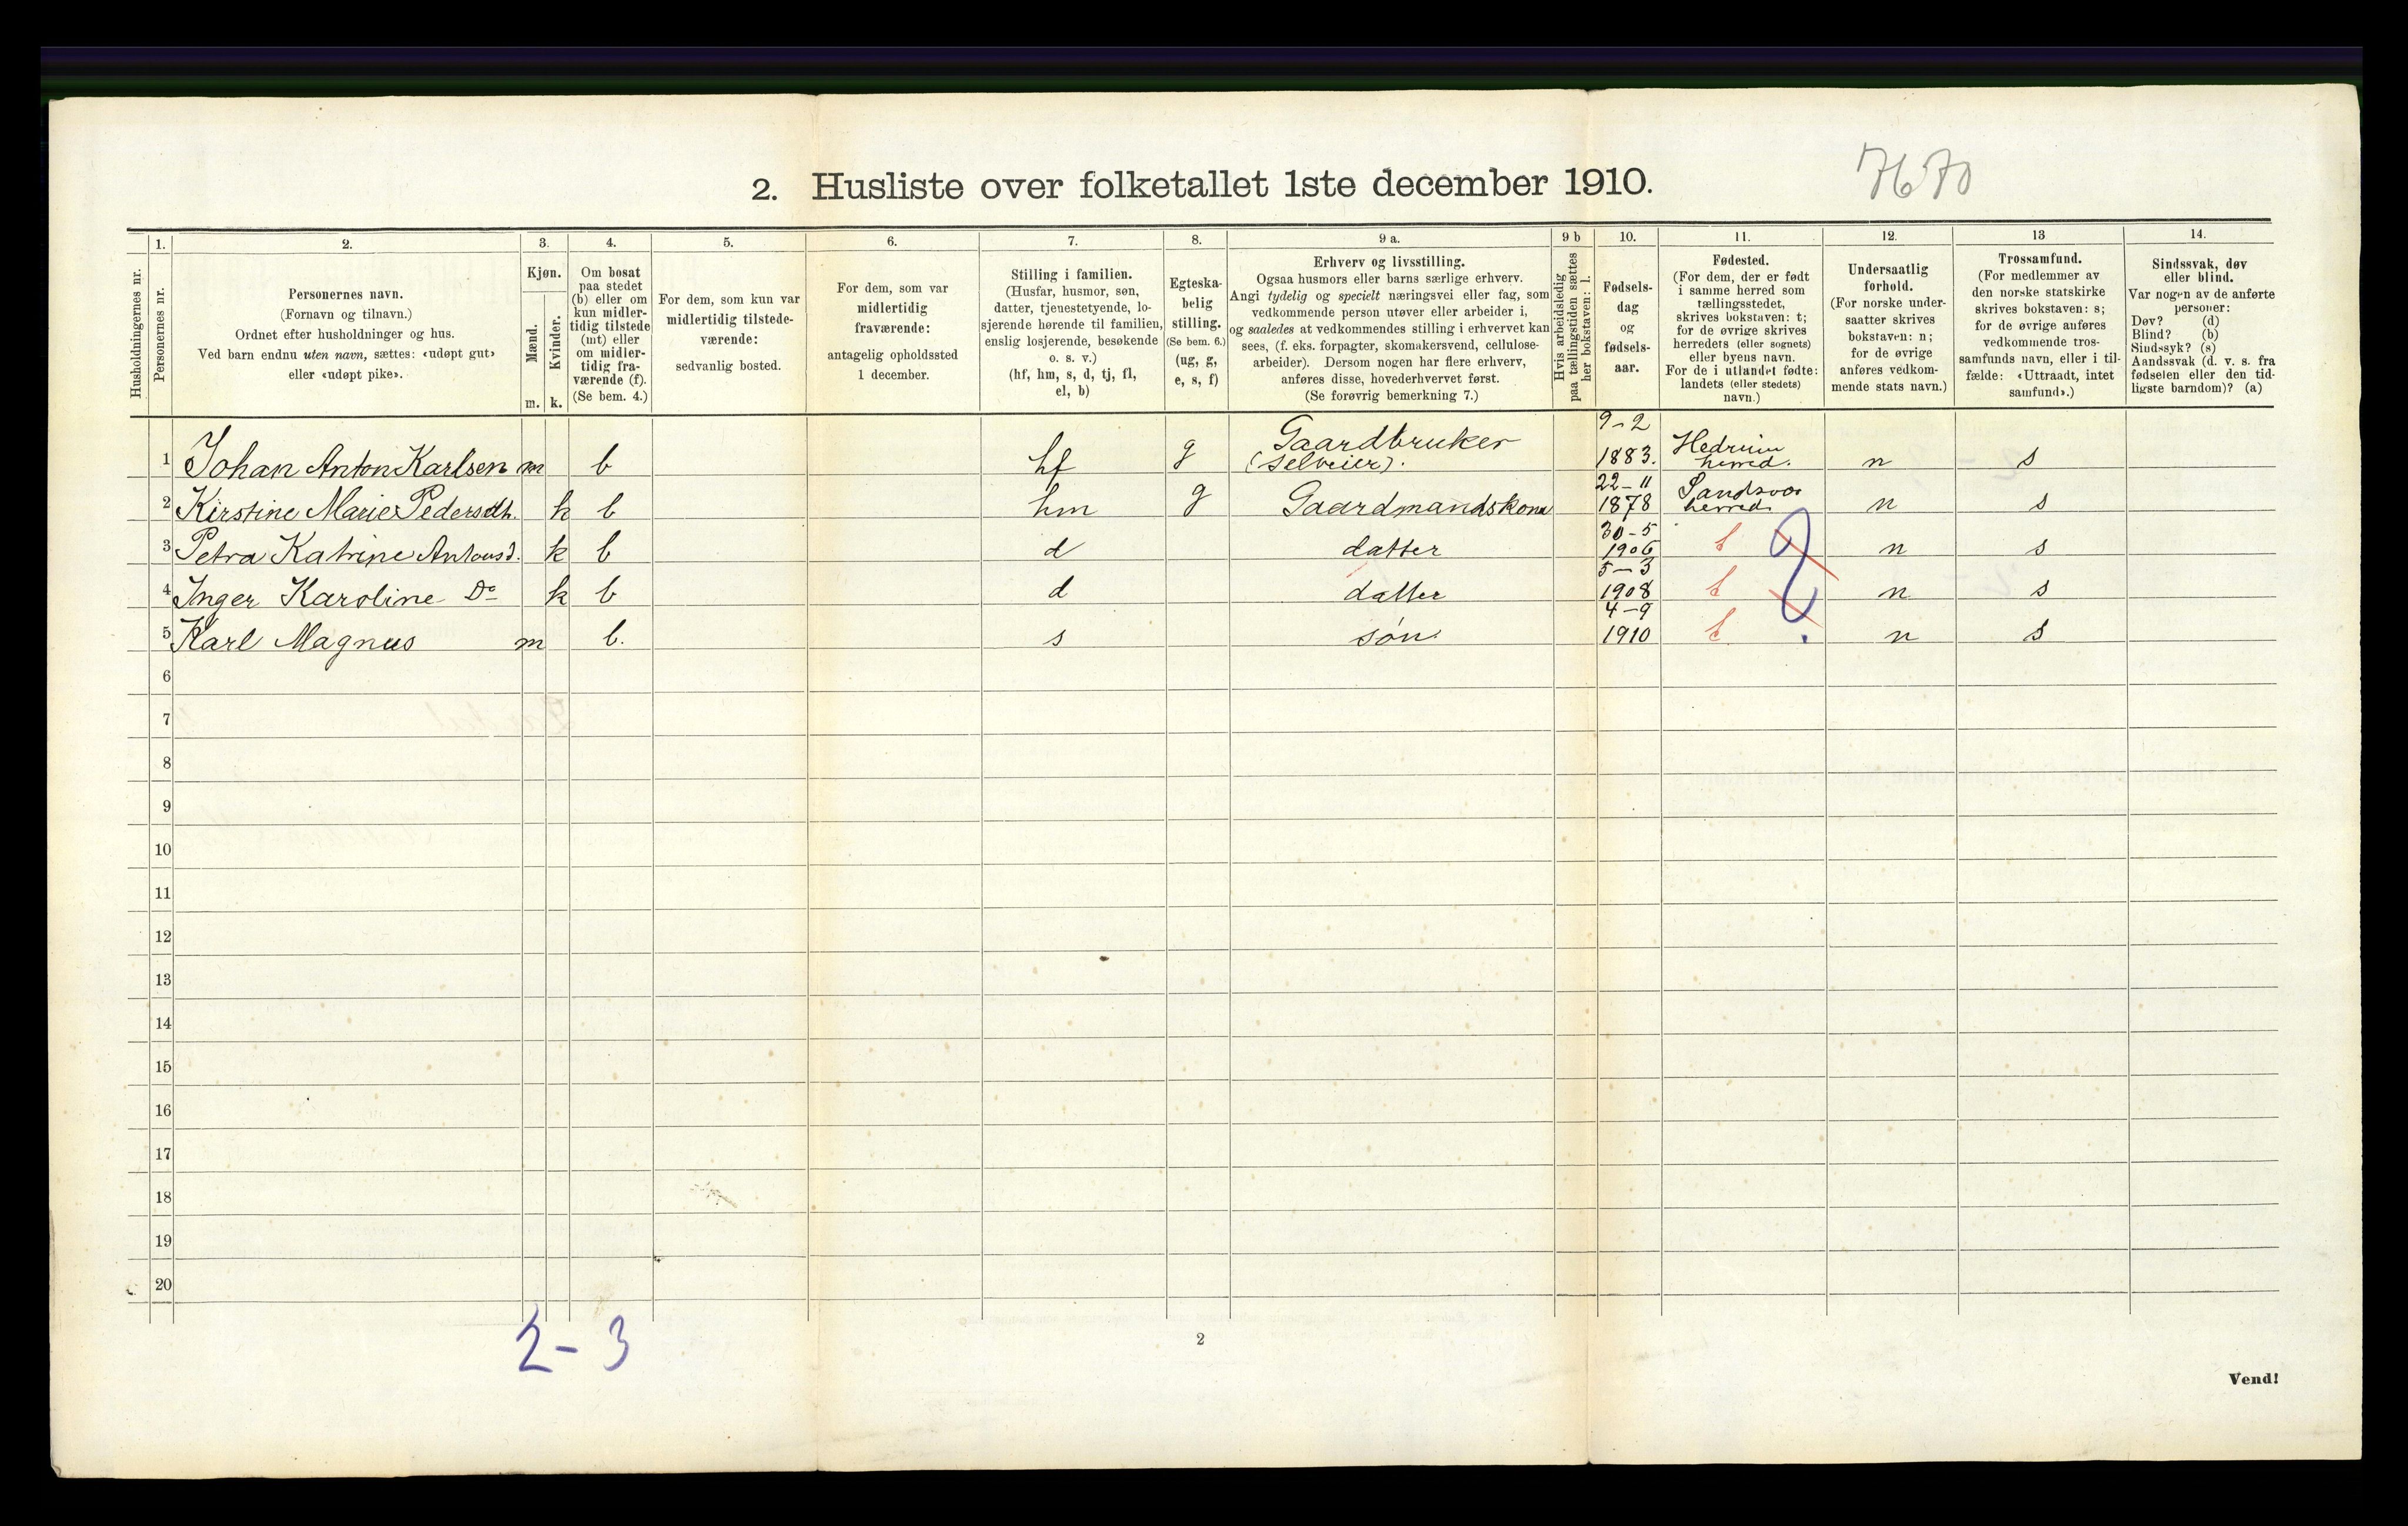 7670
2. Husliste over folketallet 1ste december 1910.
Husholdningernes nr.
1.
Personernes nr.
2.
Personernes navn.
(Fornavn og tilnavn.)
Ordnet efter husholdninger og hus.
Ved barn endnu uten navn, sættes: «udøpt gut»
eller «udøpt pike».
3.
Kjøn.
Mænd.
Kvinder.
m. k.
4.
Om bosat
paa stedet
(b) eller om
kun midler-
tidig tilstede
(mt) eller
om midler-
tidig fra-
værende (f).
(Se bem. 4.)
5.
For dem, som kun var
midlertidig tilstede-
værende:
sedvanlig bosted.
6.
For dem, som var
midlertidig
fraværende:
antagelig opholdssted
1 december.
7.
Stilling i familien.
(Husfar, husmor, søn,
datter, tjenestetyende, lo-
sjerende hørende til familien,
enslig losjerende, besøkende
o. s. v.)
(hf, hm, s, d, tj, fl,
el, b)
8.
Egteska-
belig
stilling.
(Se bem. 6.)
(ug, g,
e, s, f)
9 a.
Erhverv og livsstilling.
Ogsaa husmors eller barns særlige erhverv.
Angi tydelig og specielt næringsvei eller fag, som
vedkommende person utøver eller arbeider i,
og saaledes at vedkommendes stilling i erhvervet kan
sees, (f. eks. forpagter, skomakersvend, cellulose-
arbeider). Dersom nogen har flere erhverv,
anføres disse, hovederhvervet først.
(Se forøvrig bemerkning 7.)
9 b
Hvis arbeidsledig
paa tællingstiden sættes
her bokstaven: l.
10.
Fødsels-
dag
og
fødsels-
aar.
11.
Fødested.
(For dem, der er født
i samme herred som
tællingsstedet,
skrives bokstaven: t;
for de øvrige skrives
herredets (eller sognets)
eller byens navn.
For de i utlandet fødte:
landets (eller stedets)
navn.)
12.
Undersaatlig
forhold.
(For norske under-
saatter skrives
bokstaven: n;
for de øvrige
anføres vedkom-
mende stats navn.)
13
Trossamfund.
(For medlemmer av
den norske statskirke
skrives bokstaven: s;
for de øvrige anføres
vedkommende tros-
samfunds navn, eller i til-
fælde: «Uttraadt, intet
samfund».)
14.
Sindssvak, døv
eller blind.
Var nogen av de anførte
personer:
Døv? (d)
Blind? (b)
Sindssyk? (s)
Aandssvak (d. v. s. fra
fødselen eller den tid-
ligste barndom)? (a)
1 Johan Anton Karlsen m b hf g Gaardbruker (selveier). 9-2 1883. Hedrum herred. n s
2 Kirstine Marie Pedersdh. k b hm g Gaardmandskone 22-11 1878 Sandsvær herred. n s
3 Petra Katrine Antonsd. k b d datter 30-5 1906 t n s
4 Inger Karoline Do k b d datter 5-3 1908 t n s
5 Karl Magnus m b. s søn 4-9 1910 t n s
?
6
7
8
9
10
11
12
13
14
15
16
17
18
19
20
2-3
2
Vend!